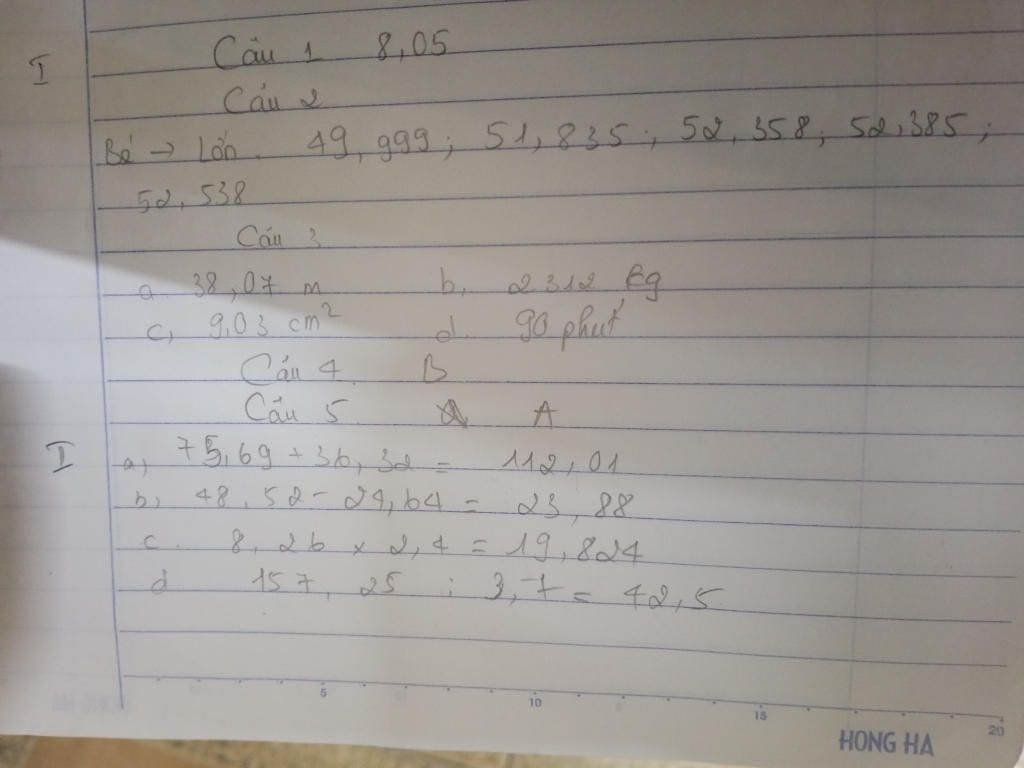 I
Câu 1 8,05
Câu 2
Bé → Lớn. 49,999; 51,835; 52,358; 52,385;
52,538
Câu 3
a. 38,07 m b, 2312 kg
c, 9,03 cm² d. 90 phút
Câu 4. B
Câu 5 A
I a) 75,69 + 36,32 = 112,01
b, 48,52 - 24,64 = 23,88
c. 8,26 × 2,4 = 19,824
d 157,25 : 3,7 = 42,5
5 10 15 20
HONG HA